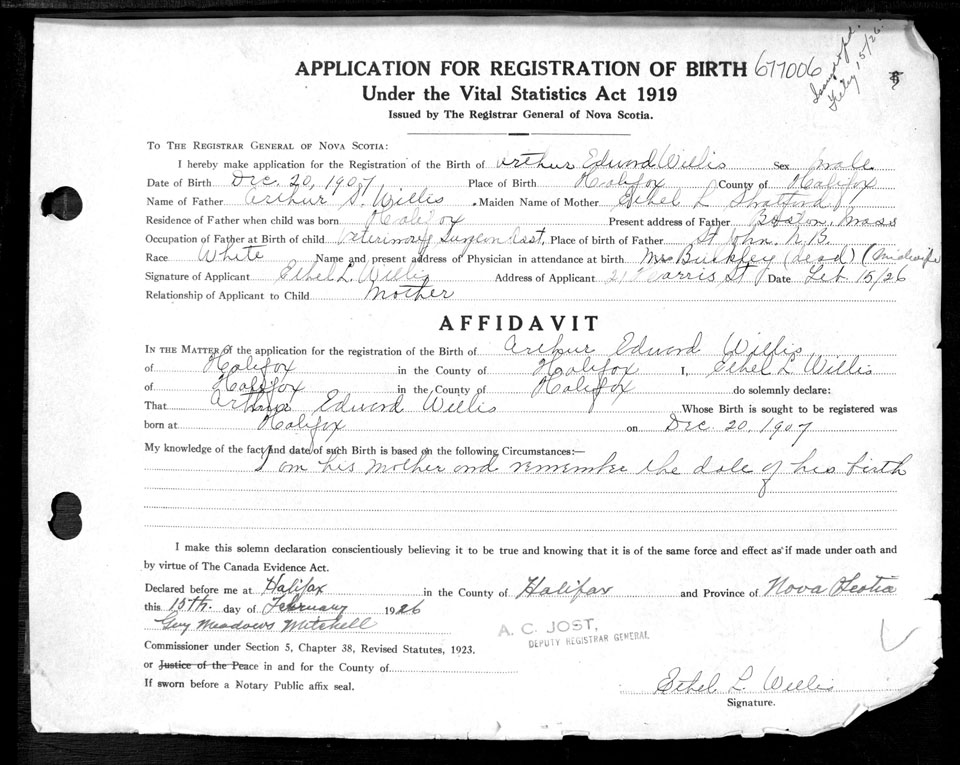 Issued
Feby 15/26.
APPLICATION FOR REGISTRATION OF BIRTH 677006
Under the Vital Statistics Act 1919
Issued by The Registrar General of Nova Scotia.
To The Registrar General of Nova Scotia:
I hereby make application for the Registration of the Birth of Arthur Edward Willis Sex Male
Date of Birth Dec. 20, 1907 Place of Birth Halifax County of Halifax
Name of Father Arthur S. Willis Maiden Name of Mother Ethel L Stratford
Residence of Father when child was born Halifax Present address of Father Boston, Mass
Occupation of Father at Birth of child Veterinary Surgeon Place of birth of Father St John. N.B.
Race White Name and present address of Physician in attendance at birth Mrs Buckley (dead) (Midwife
Signature of Applicant Ethel L Willis Address of Applicant Morris St Date Feb 15/26
Relationship of Applicant to Child Mother
AFFIDAVIT
In the Matter of the application for the registration of the Birth of Arthur Edward Willis
of Halifax in the County of Halifax I, Ethel L Willis
of Halifax in the County of Halifax do solemnly declare:
That Arthur Edward Willis Whose Birth is sought to be registered was
born at Halifax on Dec. 20, 1907
My knowledge of the fact and date of such Birth is based on the following Circumstances:—
I am his Mother and remember the date of his birth
I make this solemn declaration conscientiously believing it to be true and knowing that it is of the same force and effect as if made under oath and
by virtue of The Canada Evidence Act.
Declared before me at Halifax in the County of Halifax and Province of Nova Scotia
this 15th. day of February 1926
Guy Meadows Mitchell
A. C. JOST,
DEPUTY REGISTRAR GENERAL
Commissioner under Section 5, Chapter 38, Revised Statutes, 1923.
or Justice of the Peace in and for the County of
If sworn before a Notary Public affix seal.
Ethel L. Willis
Signature.